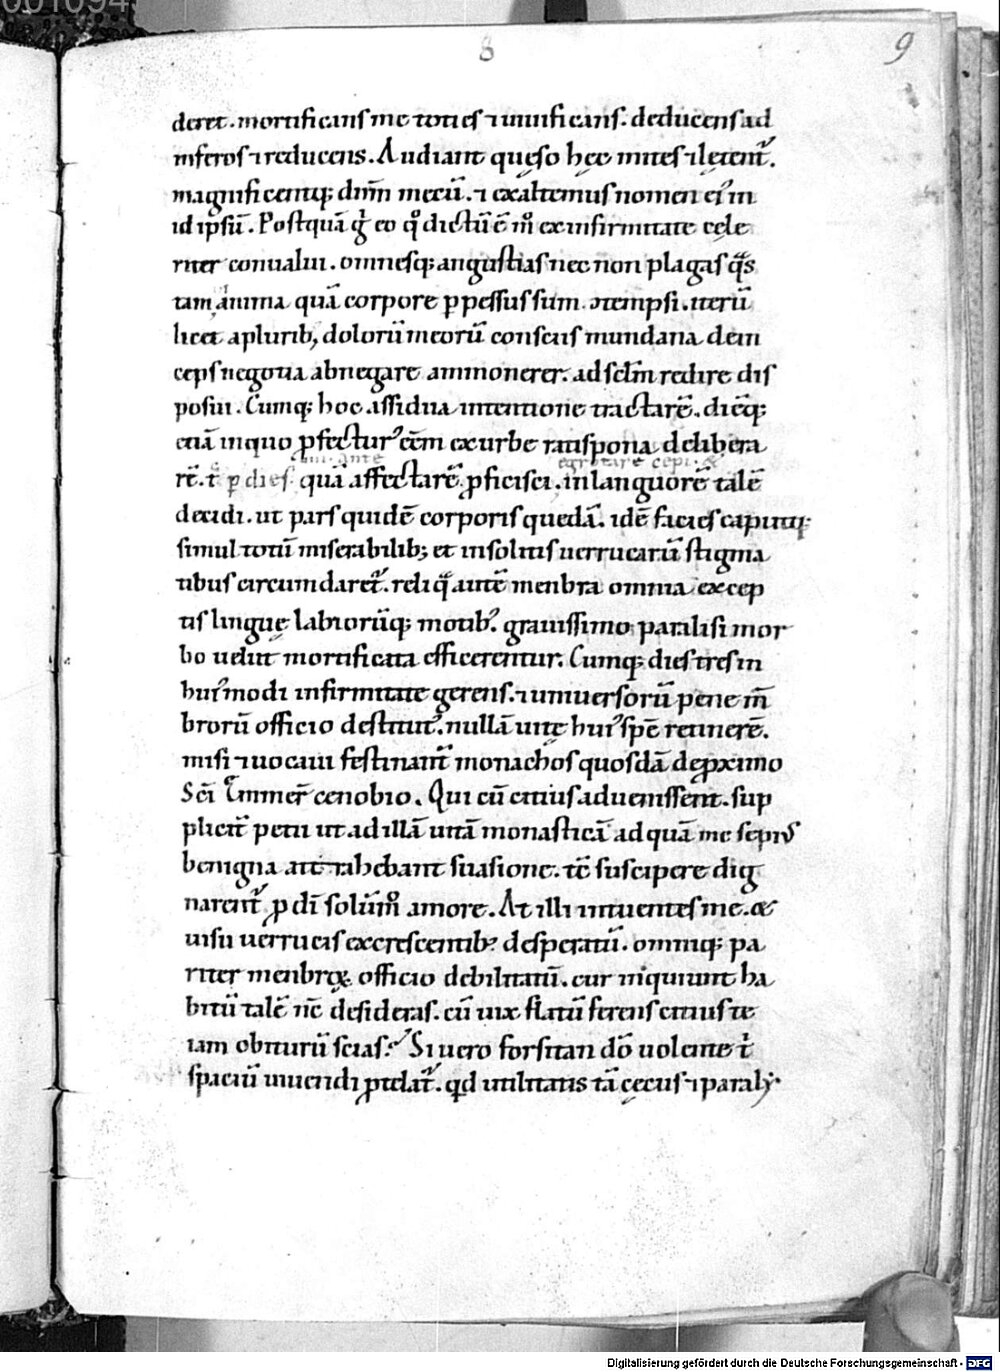 8
9
deret. mortificans me toties ⁊ uiuificans. deducens ad
inferos ⁊ reducens. Audiant quęso hec mites ⁊ lętent᷑.
magnificentq; dn̄m mecū. ⁊ exaltemus nomen ei᷒ in
id ipsū. Postquā g̊ eo qͦ dictū ē m̊ ex infirmitate cęle
riter conualui. omnesq; angustias nec non plagas q̄s
tam anima quā corpore ꝑpessus sum. ↄtempsi. iterū
licet a plurib; dolorū meorū consciis mundana dein
ceps negotia abnegare ammonerer. ad sc̄lm redire dis
posui. Cumq; hoc assidua intentione tractarē. diēq;
etiā in quo ꝓfectur᷒ eēm ex urbe ratispona delibera
rē. t̄ ꝑ dies quā affectarē ꝓficisci. in languorē talē
uni. ante egrotare cepi. &
decidi. ut pars quidē corporis quedā. idē facies capitisq;
simul totū miserabilib; et insolitis uerrucarū stigma
tibus circumdaret᷑. reliq̄ autē menbra omnia excep
tis linguę labiorūq; motib᷒. grauissimo paralisi mor
bo uelut mortificata efficerentur. Cumq; dies tres in
hui᷒modi infirmitate gerens. ⁊ uniuersorū pene m̄
brorū officio destitut᷒. nullā uitę hui᷒ spē retinerē.
misi ⁊ uocaui festinant᷑ monachos quosdā de ꝓximo
Sc̄i Emmer̄ cenobio. Qui cū citius aduenissent. sup
plicit᷑ petii ut ad illā uitā monasticā ad quā me sepi᷒
benigna ante trahebant suasione. tc̄ suscipere dig
narent᷑ ꝑ dī solūm̊ amore. At illi intuentes me. &
uisu uerrucis excrescentib᷒ desperatū. omniq; pa
riter menbroꝝ officio debilitatū. cur inquiunt ha
bitū talē nc̄ desideras. cū uix flatū ferens citius te
iam obiturū scias? Si uero forsitan dō uolente t̄
spaciū uiuendi ꝓtelat᷑. qd utilitatis tā cęcus ⁊ paraly
Digitalisierung gefördert durch die Deutsche Forschungsgemeinschaft - DFG